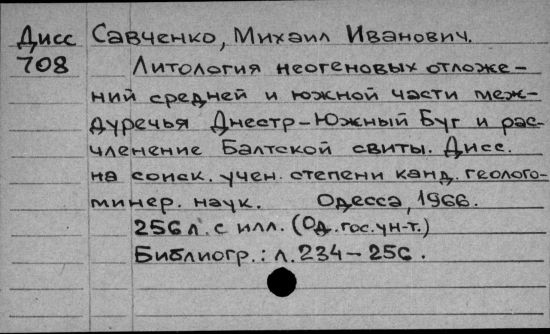 Дисс Савченко, Михаил Иванович.
708 Литология неогеновых отложе-
ний средней и южной части меж-
дуречья Днестр-Южный Буг и рас-
членение Балтской свиты. Дисс.
на соиск. учен. степени канд. геолого-
минер. наук. Одесса, 1966.
256 л. с илл. (Од. гос. ун-т.)
Библиогр.: л. 234-256.